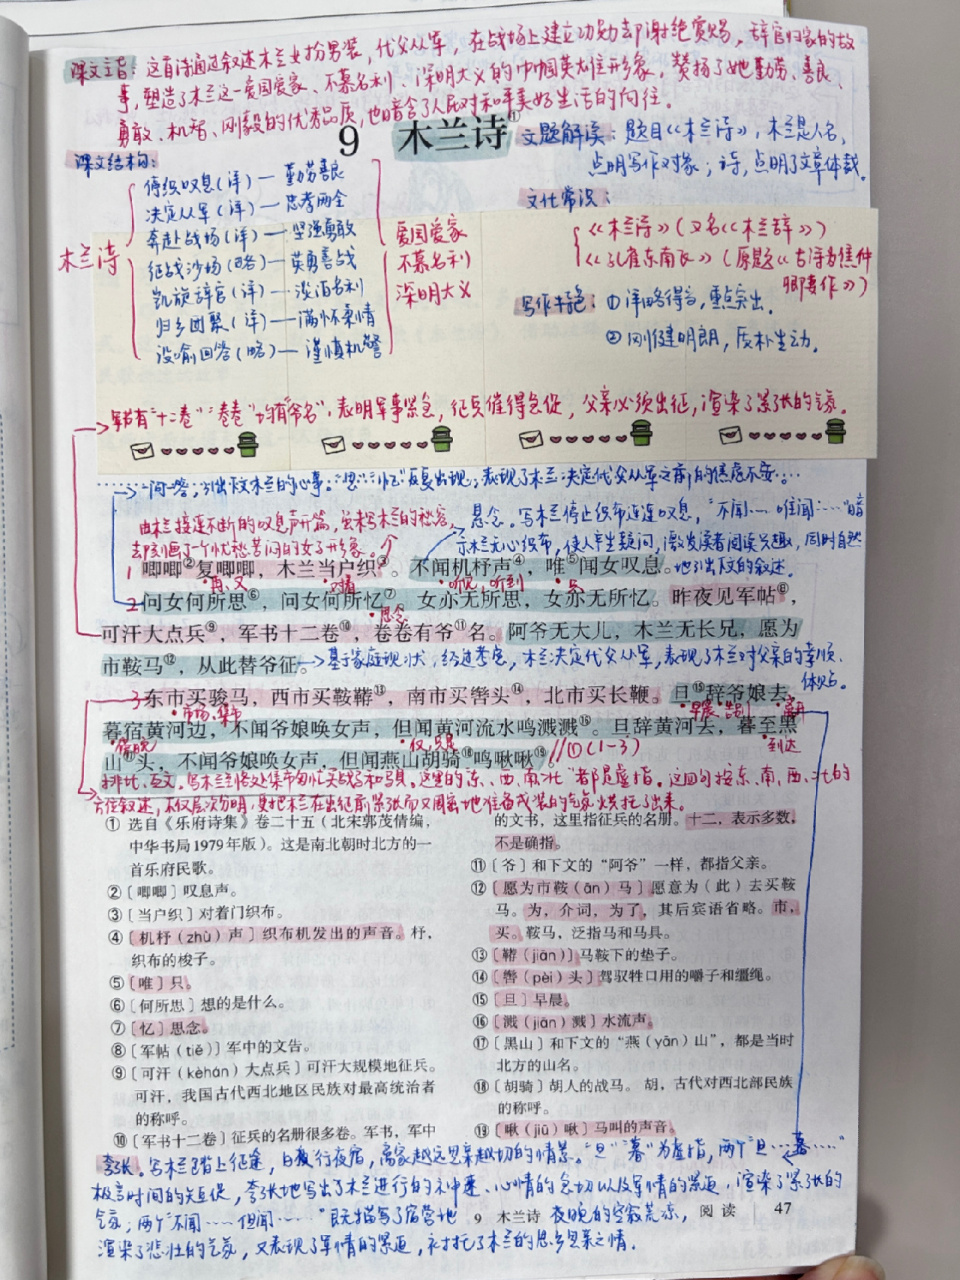 课文主旨：这首诗通过叙述木兰女扮男装，代父从军，在战场上建立功勋却谢绝赏赐，辞官归家的故
事，塑造了木兰这一爱国爱家、不慕名利、深明大义的巾帼英雄形象，赞扬了她勤劳、善良、
勇敢、机智、刚毅的优秀品质，也暗含了人民对和平美好生活的向往。
9 木兰诗①
文题解读：题目《木兰诗》，木兰是人名，
点明写作对象；诗，点明了文章体裁。
课文结构：
木兰诗
停织叹息（详）— 勤劳善良
决定从军（详）— 忠孝两全
奔赴战场（详）— 坚强勇敢
征战沙场（略）— 英勇善战
凯旋辞官（详）— 淡泊名利
归乡团聚（详）— 满怀柔情
设喻回答（略）— 谨慎机警
爱国爱家
不慕名利
深明大义
文化常识：
《木兰诗》（又名《木兰辞》）
《孔雀东南飞》（原题《古诗为焦仲
卿妻作》）
写作特色：①详略得当，重点突出。
②刚健明朗，质朴生动。
军书有“十二卷”“卷卷”均有“爷名”，表明军事紧急，征兵催得急促，父亲必须出征，渲染了紧张的气氛。
一问一答，引出下文木兰的心事。“思”“忆”反复出现，表现了木兰决定代父从军之前的焦虑不安。
由木兰接连不断的叹息声开篇，虽未写木兰的愁容，
却刻画了一个忧愁苦闷的女子形象。
悬念。写木兰停止织布连连叹息，“不闻……唯闻……”暗
示木兰无心织布，使人产生疑问，激发读者阅读兴趣，同时自然
地引出下文的叙述。
1 唧唧②复唧唧，木兰当户织③。不闻机杼声④，唯⑤闻女叹息。
再、又 对着 听见，听到 只
2 问女何所思⑥，问女何所忆⑦。女亦无所思，女亦无所忆。昨夜见军帖⑧，
思念
可汗大点兵⑨，军书十二卷⑩，卷卷有爷⑪名。阿爷无大儿，木兰无长兄，愿为
市鞍马⑫，从此替爷征。
基于家庭现状，经过考虑，木兰决定代父从军，表现了木兰对父亲的孝顺、
体贴。
3 东市买骏马，西市买鞍鞯⑬，南市买辔头⑭，北市买长鞭。旦⑮辞爷娘去，
市场、集市 早晨 告别 离开
暮宿黄河边，不闻爷娘唤女声，但闻黄河流水鸣溅溅⑯。旦辞黄河去，暮至黑
傍晚 仅，只是 到达
山⑰头，不闻爷娘唤女声，但闻燕山胡骑⑱鸣啾啾⑲。//①（1-3）
排比、互文。写木兰修处集市匆忙买战马和马具。这里的“东、西、南、北”都是虚指。这四句按东、南、西、北的
方位叙述，不仅层次分明，更把木兰在出征前紧张而又周密地准备戎装的气氛烘托了出来。
① 选自《乐府诗集》卷二十五（北宋郭茂倩编，
中华书局1979年版）。这是南北朝时北方的一
首乐府民歌。
②〔唧唧〕叹息声。
③〔当户织〕对着门织布。
④〔机杼（zhù）声〕织布机发出的声音。杼，
织布的梭子。
⑤〔唯〕只。
⑥〔何所思〕想的是什么。
⑦〔忆〕思念。
⑧〔军帖（tiě）〕军中的文告。
⑨〔可汗（kèhán）大点兵〕可汗大规模地征兵。
可汗，我国古代西北地区民族对最高统治者
的称呼。
⑩〔军书十二卷〕征兵的名册很多卷。军书，军中
的文书，这里指征兵的名册。十二，表示多数，
不是确指。
⑪〔爷〕和下文的“阿爷”一样，都指父亲。
⑫〔愿为市鞍（ān）马〕愿意为（此）去买鞍
马。为，介词，为了，其后宾语省略。市，
买。鞍马，泛指马和马具。
⑬〔鞯（jiān）〕马鞍下的垫子。
⑭〔辔（pèi）头〕驾驭牲口用的嚼子和缰绳。
⑮〔旦〕早晨。
⑯〔溅（jiān）溅〕水流声。
⑰〔黑山〕和下文的“燕（yān）山”，都是当时
北方的山名。
⑱〔胡骑〕胡人的战马。胡，古代对西北部民族
的称呼。
⑲〔啾（jiū）啾〕马叫的声音。
夸张。写木兰踏上征途，日夜行夜宿，离家越远思亲越切的情景。“旦”“暮”为虚指，两个“旦……暮……”
极言时间的短促，夸张地写出了木兰进行的神速、心情的急切以及军情的紧迫，渲染了紧张的
气氛；两个“不闻……但闻……”既描写了宿营地夜晚的空寂荒凉，
9 木兰诗 阅读 | 47
渲染了悲壮的气氛，又表现了军情的紧迫，衬托了木兰的思乡思亲之情。